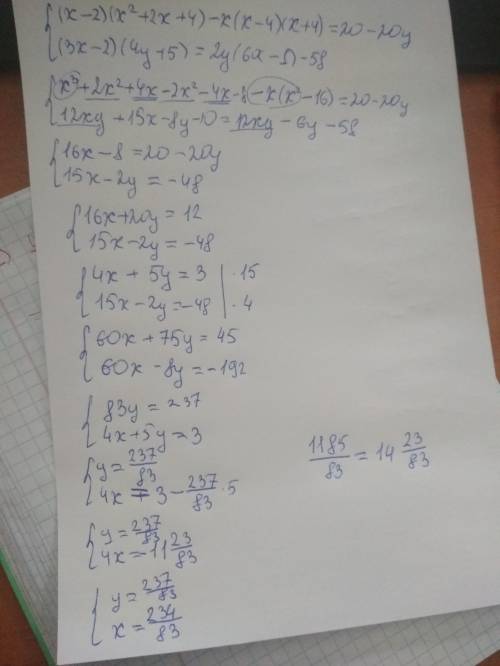 (x-2)(x²+2x+4)-x(x-4)(x+4)=20-20y
(3x-2)(4y+5)=2y(6x-Ω)-58
x³+2x²+4x-2x²-4x-8-x(x²-16)=20-20y
12xy+15x-8y-10=12xy-6y-58
16x-8=20-20y
15x-2y=-48
16x+20y=12
15x-2y=-48
4x+5y=3 | ·15
15x-2y=-48 | ·4
60x+75y=45
60x-8y=-192
83y=237
4x+5y=3
y=237/83
4x=3-237/83·5
1185/83=14 23/83
y=237/83
4x=11 23/83
y=237/83
x=234/83